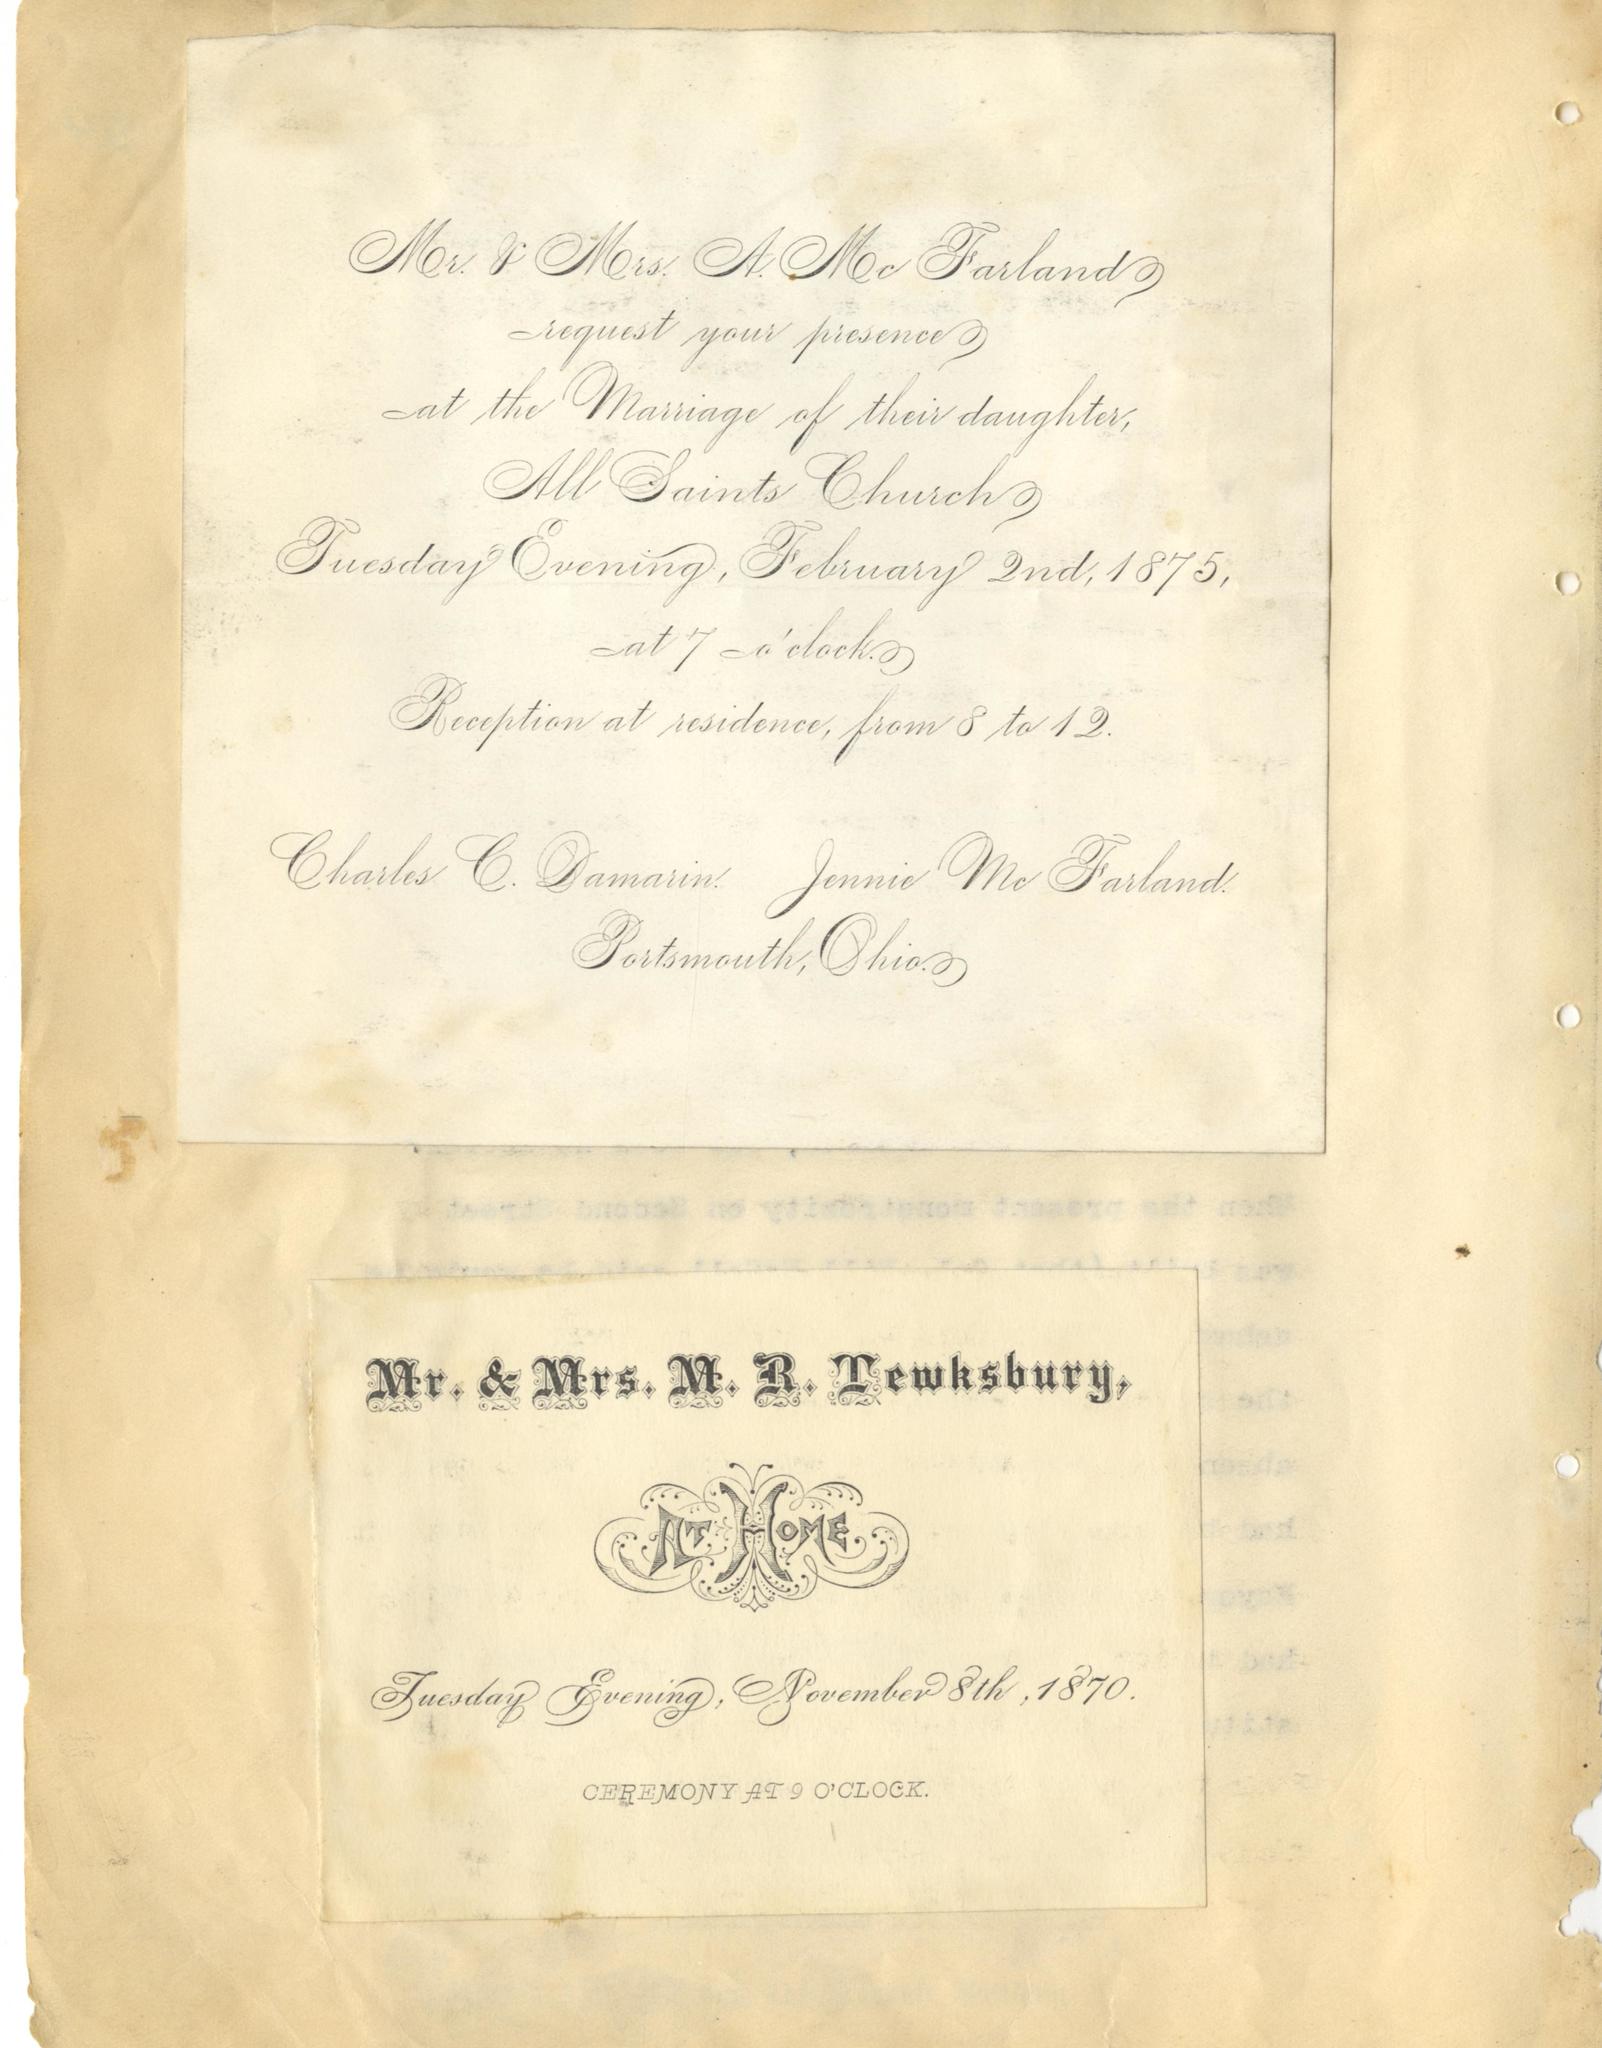 Mr. & Mrs. A. Mc Farland
request your presence
at the Marriage of their daughter,
All Saints Church
Tuesday Evening, February 2nd, 1875,
at 7 o'clock.
Reception at residence, from 8 to 12.
Charles C. Damarin. Jennie Mc Farland.
Portsmouth, Ohio.
When the present monstrosity on Second Street
was
the
had
had
Mr. & Mrs. M. R. Tewksbury,
AT HOME
Tuesday Evening, November 8th, 1870.
CEREMONY AT 9 O'CLOCK.